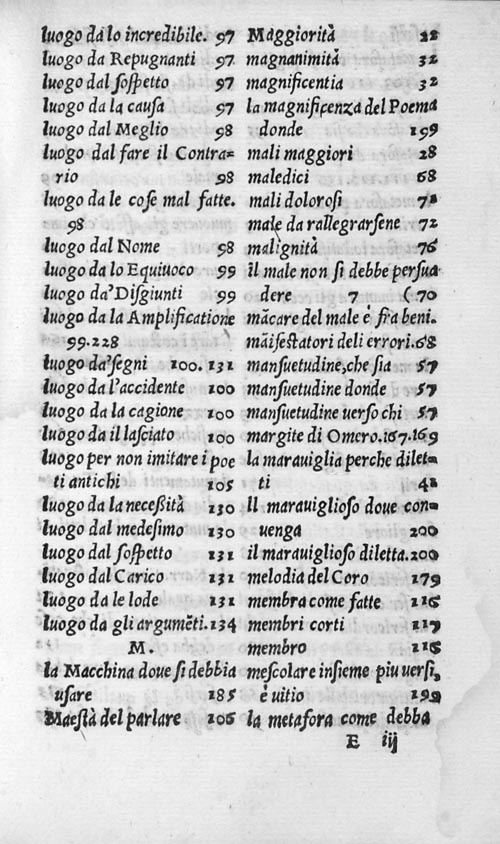 luogo da lo incredibile. 97
luogo da Repugnanti 97
luogo dal ſoſpetto 97
luogo da la cauſa 97
luogo dal Meglio 98
luogo dal fare il Contra=
rio 98
luogo da le coſe mal fatte.
98
luogo dal Nome 98
luogo da lo Equiuoco 99
luogo da'Diſgiunti 99
luogo da la Amplificatione
99.228
luogo da'ſegni 100. 131
luogo da l'accidente 100
luogo da la cagione 100
luogo da il laſciato 100
luogo per non imitare i poe
ti antichi 105
luogo da la neceßità 130
luogo dal medeſimo 130
luogo dal ſoſpetto 131
luogo dal Carico 131
luogo da le lode 131
luogo da gli argumēti. 134
M.
la Macchina doue ſi debbia
uſare 185
Maeſtà del parlare 106
Maggiorità 22
magnanimità 32
magnificentia 32
la magnificenza del Poema
donde 199
mali maggiori 28
maledici 68
mali doloroſi 72
male da rallegrarſene 72
malignità 76
il male non ſi debbe perſua
dere 7 (70
mācare del male è fra beni.
māifeſtatori deli errori. 68
manſuetudine, che ſia 57
manſuetudine donde 57
manſuetudine uerſo chi 57
margite di Omero. 167.169
la marauiglia perche dilet=
ti 42
Il marauiglioſo doue con=
uenga 200
il marauiglioſo diletta. 200
melodia del Coro 179
membra come fatte 116
membri corti 117
membro 115
meſcolare inſieme piu uerſi,
è uitio 199
la metafora come debba
E iij